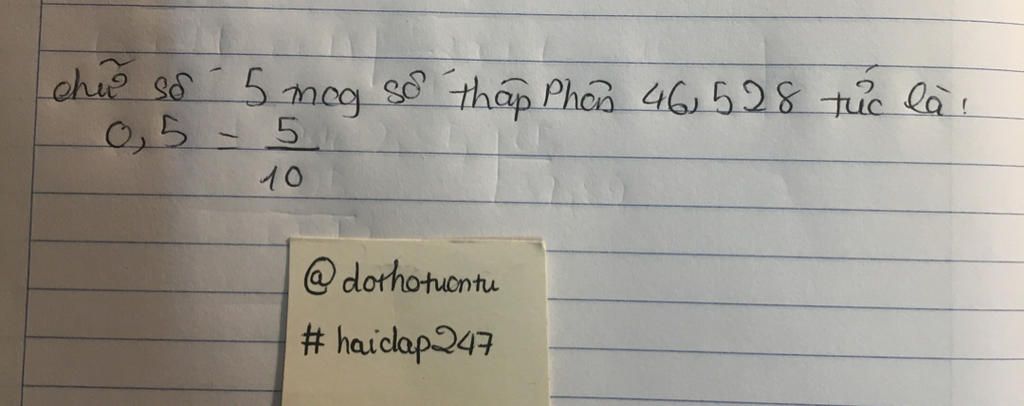 chữ số 5 mcg số thập phân 46,528 tức là:
0,5 = 5/10
@dothotuontu
# haidap247